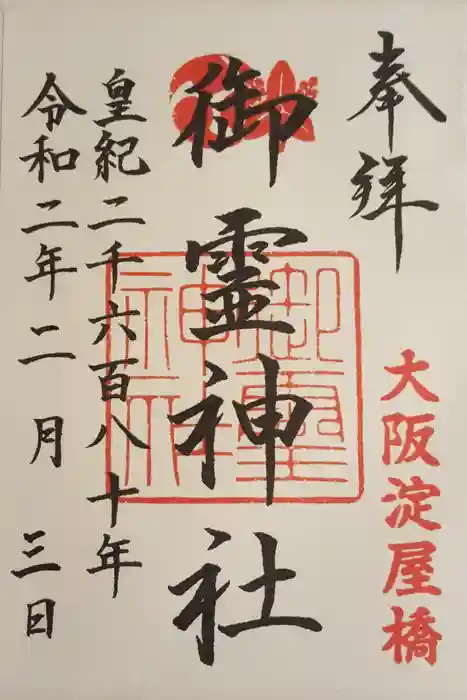 奉拝
大阪淀屋橋
御霊神社
御霊神社
皇紀二千六百八十年
令和二年二月三日